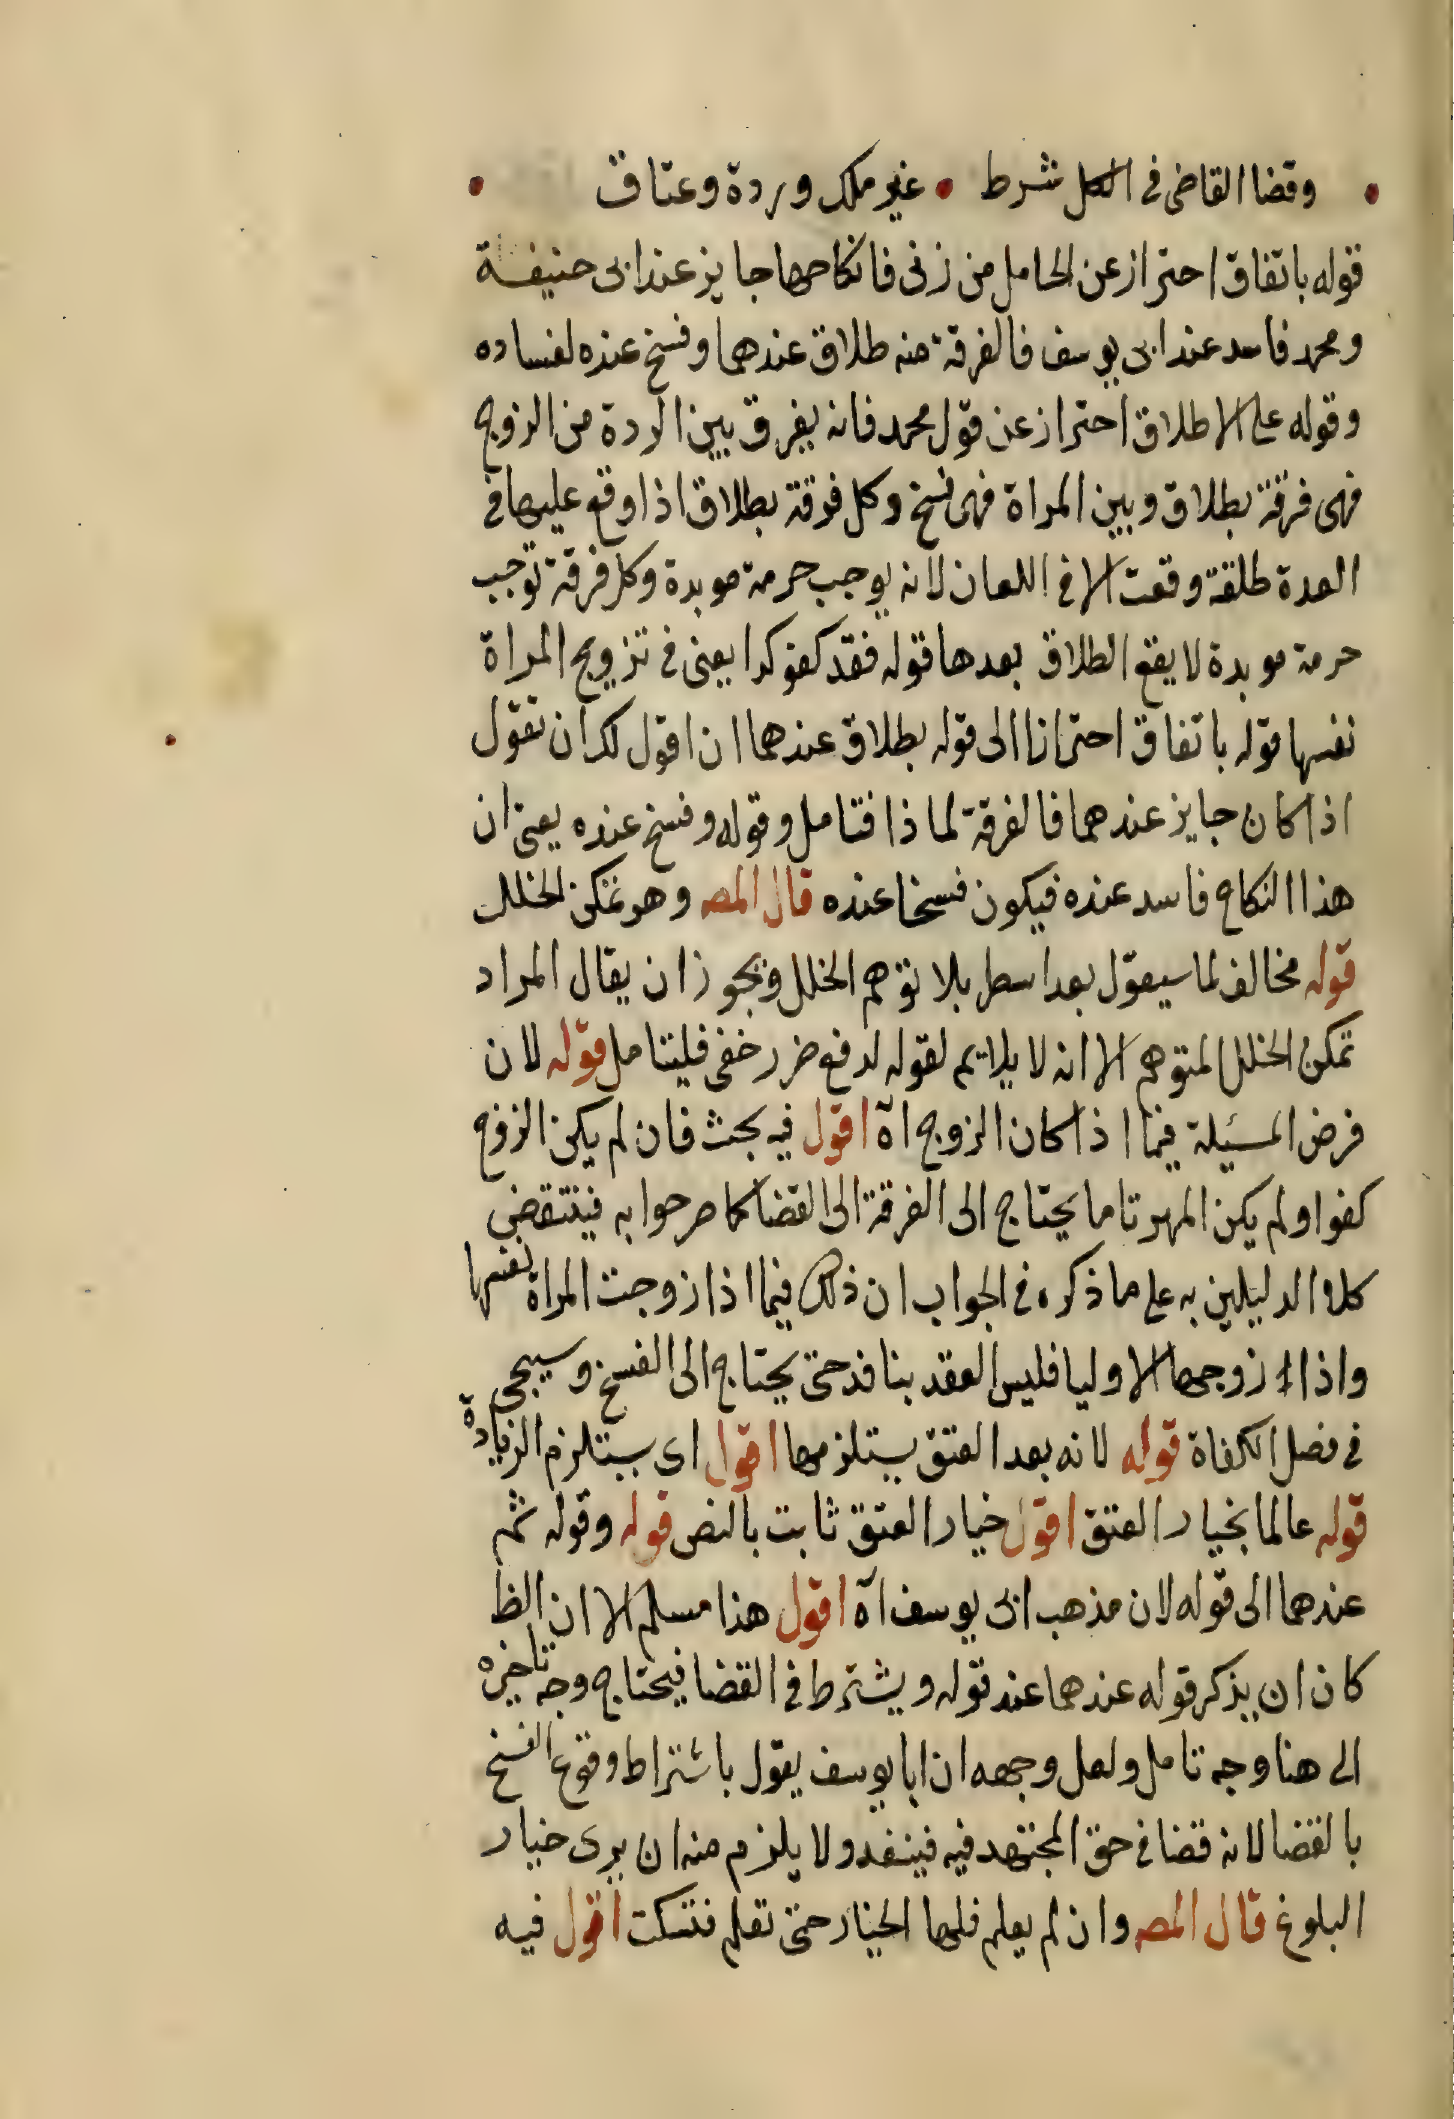 وقضا القاضى فى الكل شرط • غير ملك وردة وعتاق •
قوله باتفاق احتراز عن الحامل من زنى فانكاحها جايز عند ابى حنيفة
ومحمد فاسد عند ابى يوسف فالفرقة منه طلاق عندهما وفسخ عنده لفساده
وقوله على الاطلاق احتراز عن قول محمد فانه يفرق بين الردة من الزوج
فهى فرقة بطلاق وبين المراة فهى فسخ وكل فرقة بطلاق اذا وقع عليها فى
العدة طلقة وقعت الا فى اللعان لانه يوجب حرمة موبدة وكل فرقة توجب
حرمة موبدة لا يقع الطلاق بعدها قوله فقد كفو كذا يعنى فى تزويج المراة
نفسها قوله باتفاق احترازا الى قوله بطلاق عندهما ان اقول لك ان تقول
اذا كان جايز عندهما فالفرقة لماذا فتامل وقوله وفسخ عنده يعنى ان
هذا النكاح فاسد عنده فيكون فسخا عنده قال المصـ وهو تمكن الخلل
قوله مخالف لما سيقول بعد اسطر بلا توهم الخلل ويجوز ان يقال المراد
تمكن الخلل المتوهم الا انه لا يلايم لقوله لدفع ضرر خفى فليتامل قوله لان
فرض المسئيلة فيما اذا كان الزوج اه اقول فيه بحث فان لم يكن الزوج
كفوا ولم يكن المهر تاما يحتاج الى الفرقة الى القضا كما صرحوا به فينتقض
كلا الدليلين به على ما ذكره فى الجواب ان ذلك فيما اذا زوجت المراة نفسها
واذا زوجها الاوليا فليس العقد بنافذ حتى يحتاج الى الفسخ وسيجى
فى فصل الكفاة قوله لانه بعد العتق يستلزمها اقول اى يستلزم الزيادة
قوله عالما بخيار العتق اقول خيار العتق ثابت بالنص قوله وقوله ثم
عندهما الى قوله لان مذهب ابى يوسف اه اقول هذا مسلم الا ان الظ
كان ان يذكر قوله عندهما عند قوله ويشترط فى القضا فيحتاج وجه تاخيره
الى هنا وجه تامل ولعل وجهه ان ابا يوسف يقول باشتراط وقوع الفسخ
بالقضا لانه قضا فى حق المجتهد فيه فينفد ولا يلزم منه ان يرى خيار
البلوغ قال المصـ وان لم يعلم فلها الخيار حتى تعلم فتسكت اقول فيه